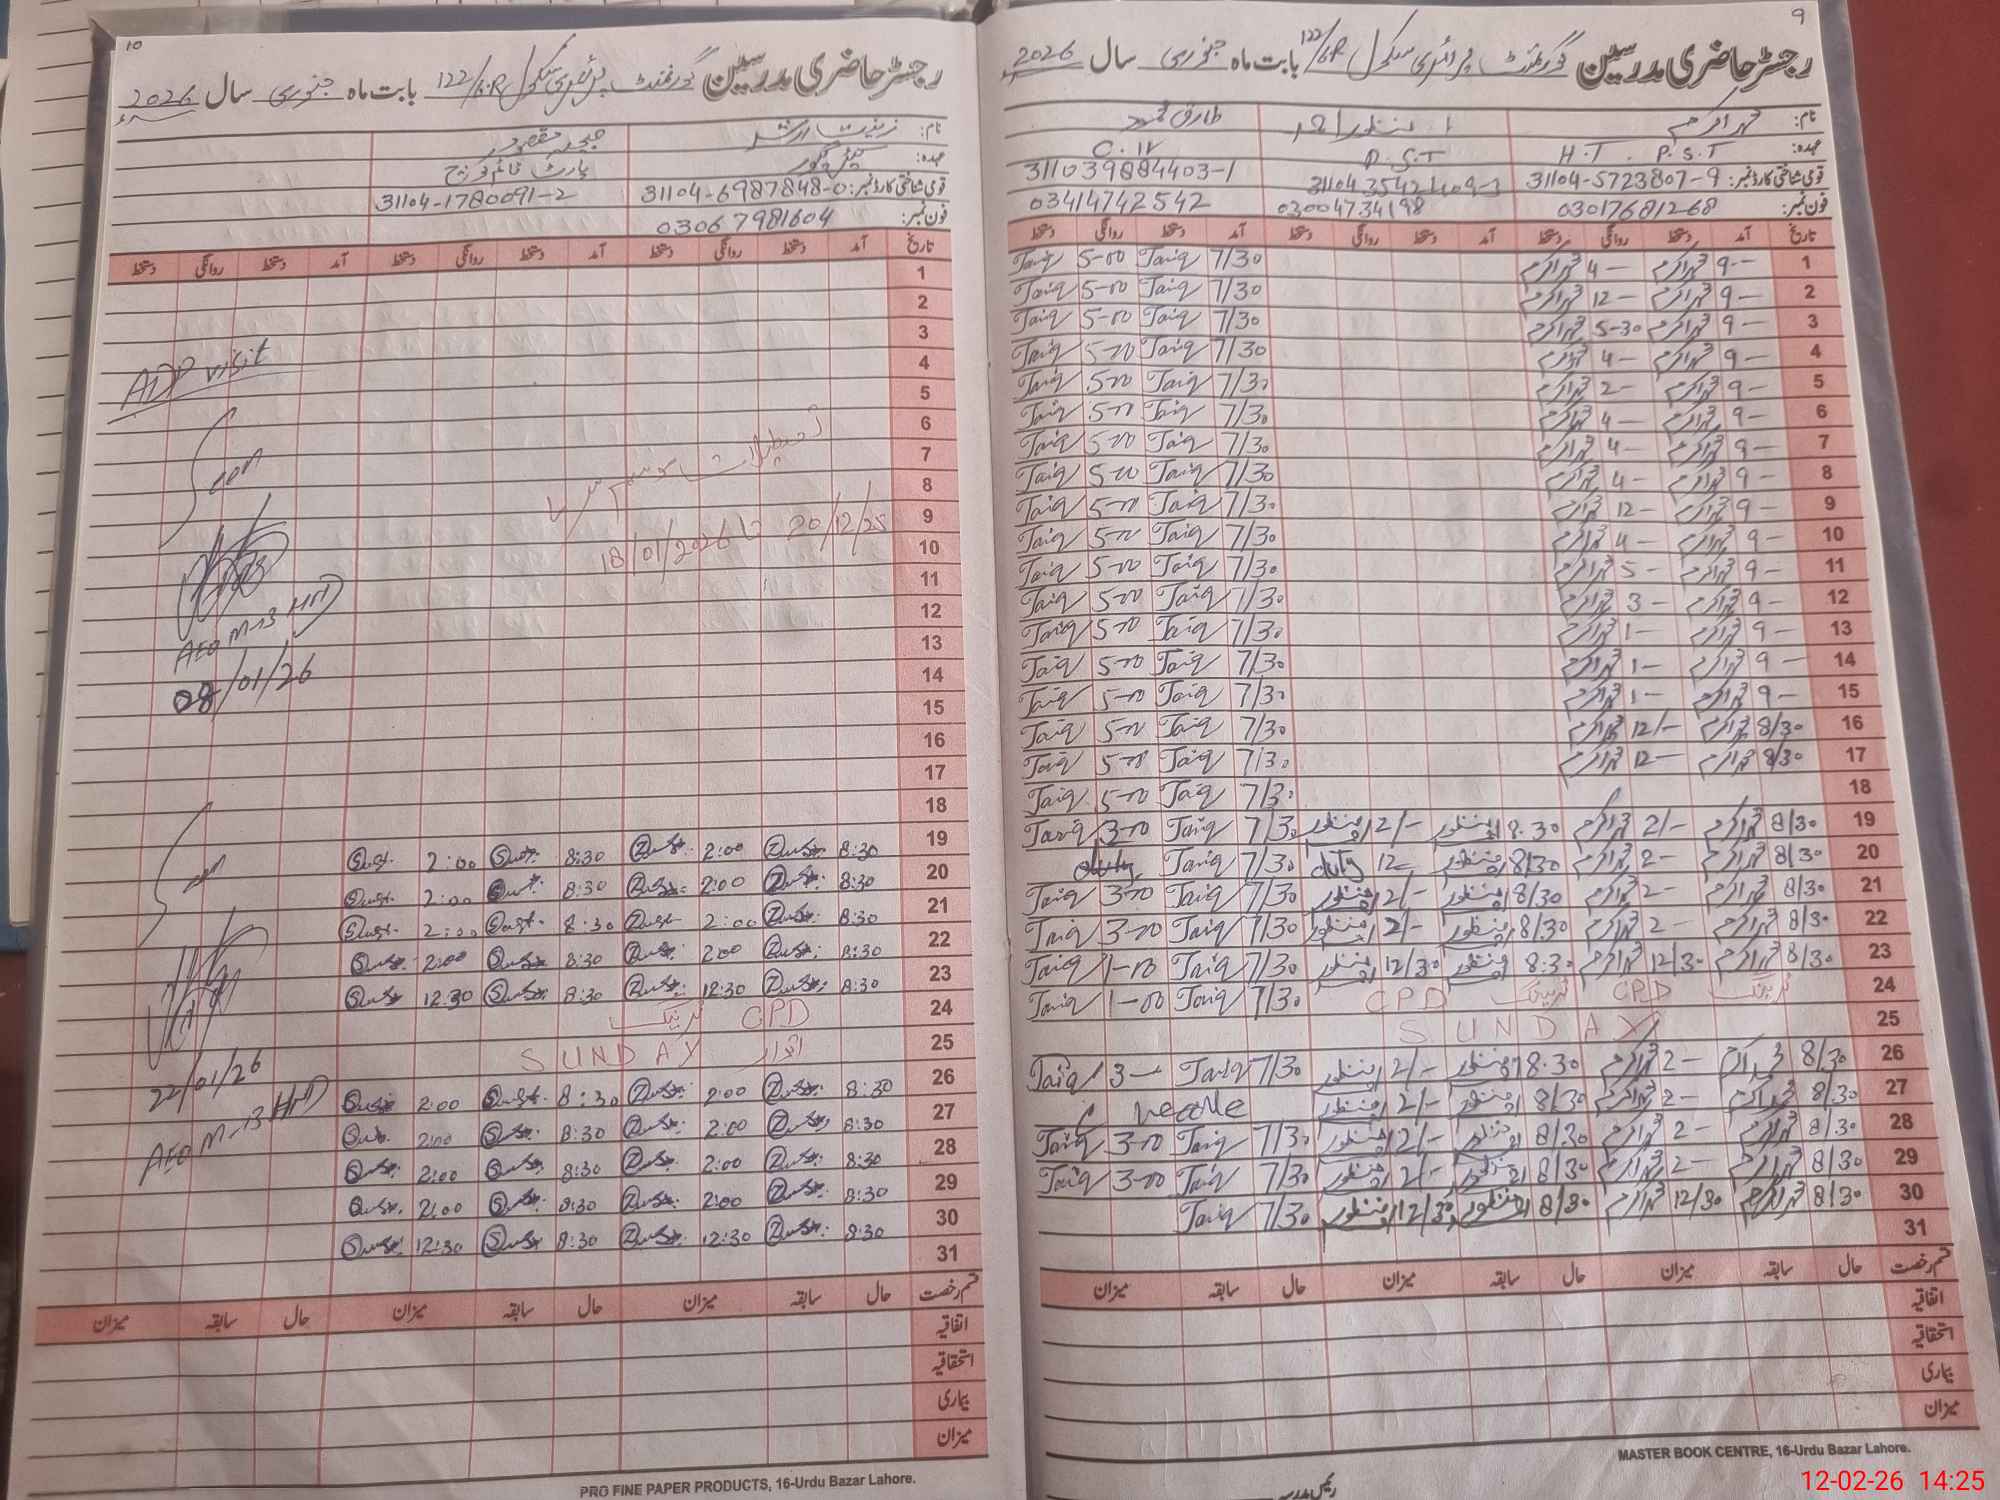 10
رجسٹر حاضری مدرسین گورنمنٹ پرائمری سکول 122/6R بابت ماہ جنوری سال 2026
نام: زینت ارشد
عہدہ:
پارٹ ٹائم کوچ
قومی شناختی کارڈ نمبر: 31104-6987848-0 31104-1780091-2
فون نمبر: 03067981604
تاریخ آمد دستخط روانگی دستخط آمد دستخط روانگی دستخط آمد دستخط روانگی دستخط
1
2
3
4
visit
5
6
7 تعطیلات موسم سرما
8
9 20/12/25 تا 18/01/2026
10
11
12
AEO M-13 HND
13
08/01/26
14
15
16
17
18
19 8:30 2:00 8:30 2:00
20 8:30 2:00 8:30 2:00
21 8:30 2:00 8:30 2:00
22 8:30 2:00 8:30 2:00
23 8:30 12:30 8:30 12:30
24 CPD ٹریننگ
25 اتوار SUNDAY
22/01/26
26 8:30 2:00 8:30 2:00
AEO M-13 HND
27 8:30 2:00 8:30 2:00
28 8:30 2:00 8:30 2:00
29 8:30 2:00 8:30 2:00
30 8:30 12:30 8:30 12:30
31
قسم رخصت حال سابقہ میزان حال سابقہ میزان حال سابقہ میزان
اتفاقیہ
استحقاقیہ
بیماری
میزان
PRO FINE PAPER PRODUCTS, 16-Urdu Bazar Lahore.
9
رجسٹر حاضری مدرسین گورنمنٹ پرائمری سکول 122/6R بابت ماہ جنوری سال 2026
نام: محمد اکرم منظور احمد طارق محمود
عہدہ: H.T. P.S.T P.S.T C.IV
قومی شناختی کارڈ نمبر: 31104-5723807-9 311039884403-1
فون نمبر: 03017681268 03004734198 03414742542
تاریخ آمد دستخط روانگی دستخط آمد دستخط روانگی دستخط آمد دستخط روانگی دستخط
1 9- محمد اکرم 4- محمد اکرم 7/30 Tariq 5-00 Tariq
2 9- محمد اکرم 12- محمد اکرم 7/30 Tariq 5-00 Tariq
3 9- محمد اکرم 5-30 محمد اکرم 7/30 Tariq 5-00 Tariq
4 9- محمد اکرم 4- محمد اکرم 7/30 Tariq 5-00 Tariq
5 9- محمد اکرم 2- محمد اکرم 7/30 Tariq 5-00 Tariq
6 9- محمد اکرم 4- محمد اکرم 7/30 Tariq 5-00 Tariq
7 9- محمد اکرم 4- محمد اکرم 7/30 Tariq 5-00 Tariq
8 9- محمد اکرم 4- محمد اکرم 7/30 Tariq 5-00 Tariq
9 9- محمد اکرم 12- محمد اکرم 7/30 Tariq 5-00 Tariq
10 9- محمد اکرم 4- محمد اکرم 7/30 Tariq 5-00 Tariq
11 9- محمد اکرم 5- محمد اکرم 7/30 Tariq 5-00 Tariq
12 9- محمد اکرم 3- محمد اکرم 7/30 Tariq 5-00 Tariq
13 9- محمد اکرم 1- محمد اکرم 7/30 Tariq 5-00 Tariq
14 9- محمد اکرم 1- محمد اکرم 7/30 Tariq 5-00 Tariq
15 9- محمد اکرم 1- محمد اکرم 7/30 Tariq 5-00 Tariq
16 8/30 محمد اکرم 12/- محمد اکرم 7/30 Tariq 5-00 Tariq
17 8/30 محمد اکرم 12- محمد اکرم 7/30 Tariq 5-00 Tariq
18 7/30 Tariq 5-00 Tariq
19 8/30 محمد اکرم 2/- محمد اکرم 8.30 منظور احمد 2/- منظور احمد 7/30 Tariq 3-00 Tariq
20 8/30 محمد اکرم 2- محمد اکرم 8/30 منظور احمد 12- duty 7/30 Tariq duty
21 8/30 محمد اکرم 2- محمد اکرم 8/30 منظور احمد 2/- منظور احمد 7/30 Tariq 3-00 Tariq
22 8/30 محمد اکرم 2- محمد اکرم 8/30 منظور احمد 2/- منظور احمد 7/30 Tariq 3-00 Tariq
23 8/30 محمد اکرم 12/30 محمد اکرم 8.30 منظور احمد 12/30 منظور احمد 7/30 Tariq 1-00 Tariq
24 ٹریننگ CPD ٹریننگ CPD 7/30 Tariq 1-00 Tariq
25 SUNDAY
26 8/30 محمد اکرم 2- محمد اکرم 8.30 منظور احمد 2/- منظور احمد 7/30 Tariq 3- Tariq
27 8/30 محمد اکرم 2- محمد اکرم 8/30 منظور احمد 2/- منظور احمد
28 8/30 محمد اکرم 2- محمد اکرم 8/30 منظور احمد 2/- منظور احمد 7/30 Tariq 3-00 Tariq
29 8/30 محمد اکرم 2- محمد اکرم 8/30 منظور احمد 2/- منظور احمد 7/30 Tariq 3-00 Tariq
30 8/30 محمد اکرم 12/30 محمد اکرم 8/30 منظور احمد 12/30 منظور احمد 7/30 Tariq
31
قسم رخصت حال سابقہ میزان حال سابقہ میزان حال سابقہ میزان
اتفاقیہ
استحقاقیہ
بیماری
میزان
MASTER BOOK CENTRE, 16-Urdu Bazar Lahore.
رئیس مدرسہ
12-02-26 14:25